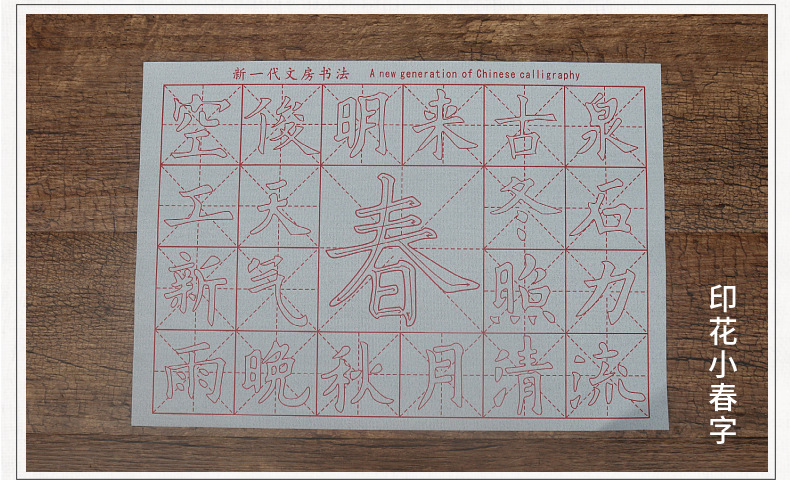 新一代文房书法 A new generation of Chinese calligraphy
空俊明来古泉
工天春冬石
新气照力
雨晚秋月清流
印花小春字